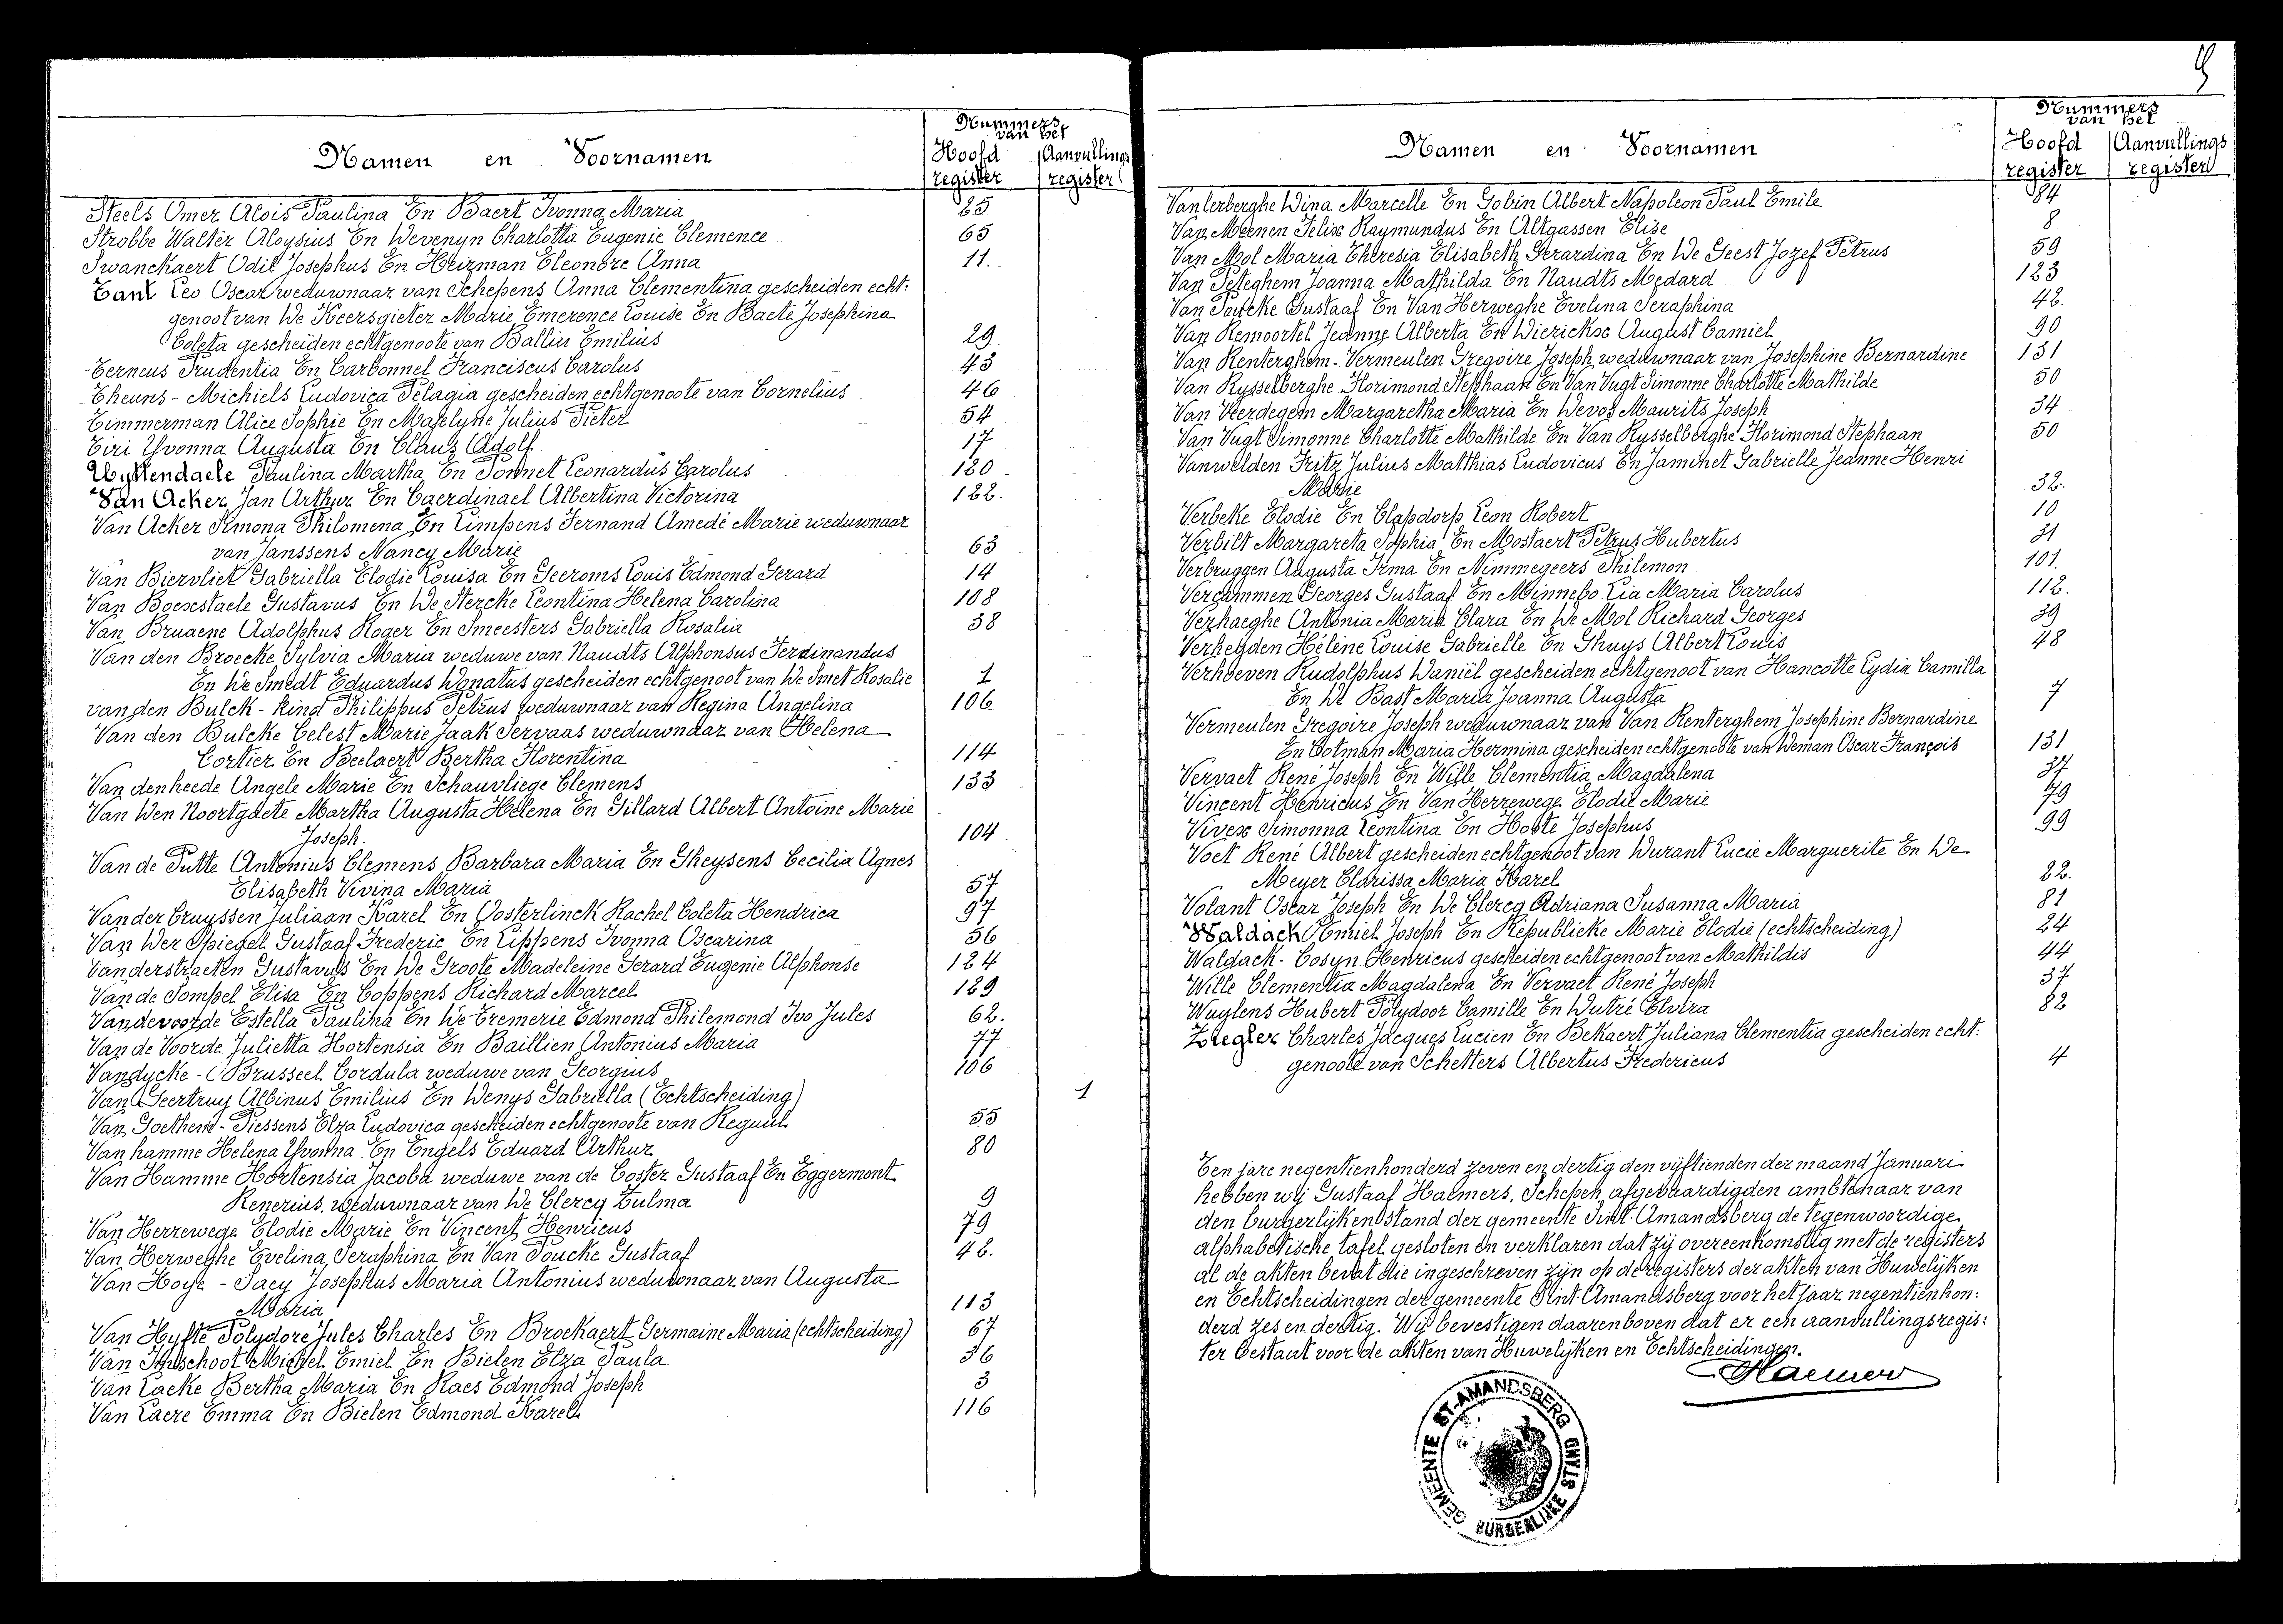 Nummers
van het
Namen en Voornamen
Hoofd register
Aanvullings register
Steels Omer Alois Paulina En Baert Ivonna Maria 25
Strobbe Walter Aloysius En Devenyn Charlotta Eugenie Clemence 65
Swanckaert Odil Josephus En Heizman Eleonore Anna 11.
Tant Leo Oscar weduwnaar van Schepens Anna Clementina gescheiden echt:
genoot van De Keersgieter Marie Emerence Louise En Baete Josephina
Coleta gescheiden echtgenoote van Balliu Emilius 29
Terneus Prudentia En Carbonnel Franciscus Carolus 43
Theuns - Michiels Ludovica Pelagia gescheiden echtgenoote van Cornelius 46
Timmerman Alice Sophie En Mapelyne Julius Pieter 54
Tiri Yvonna Augusta En Claus Adolf 17
Uyttendaele Paulina Martha En Ponnet Leonardus Carolus 120
Van Acker Jan Arthur En Caerdinael Albertina Victorina 122.
Van Acker Simona Philomena En Limpens Fernand Amedé Marie weduwnaar
van Janssens Nancy Marie 63
Van Biervliet Gabriella Elodie Louisa En Geeroms Louis Edmond Gerard 14
Van Bocxstaele Gustavus En De Stercke Leontina Helena Carolina 108
Van Bruaene Adolphus Roger En Smeesters Gabriella Rosalia 38
Van den Broecke Sylvia Maria weduwe van Naudts Alphonsus Ferdinandus
En De Smedt Eduardus Donatus gescheiden echtgenoot van De Smet Rosalie 1
van den Bulck - Rind Philippus Petrus weduwnaar van Regina Angelina 106
Van den Bulcke Celest Marie Jaak Servaas weduwnaar van Helena
Cortier En Beelaert Bertha Florentina 114
Van denheede Angele Marie En Schauvliege Clemens 133
Van Den Noortgaete Martha Augusta Helena En Gillard Albert Antoine Marie
Joseph. 104
Van de Putte Antonius Clemens Barbara Maria En Gheysens Cecilia Agnes
Elisabeth Vivina Maria 57
Van der Cruyssen Juliaan Karel En Oosterlinck Rachel Coleta Hendrica 97
Van Der Spiegel Gustaaf Frederic En Lippens Ivonna Oscarina 56
Vanderstraeten Gustavus En De Groote Madeleine Gerard Eugenie Alphonse 124
Van de Sompel Elisa En Coppens Richard Marcel 129
Vandevoorde Estella Paulina En De Tremerie Edmond Philemond Ivo Jules 62.
Van de Voorde Julietta Hortensia En Baillien Antonius Maria 77
Vandycke - Brusseel Cordula weduwe van Georgius 106
Van Geertruy Albinus Emilius En Denys Gabriella (Echtscheiding) 1
Van Goethem - Piessens Elza Ludovica gescheiden echtgenoote van Reguul 55
Van hamme Helena Yvonna En Engels Eduard Arthur 80
Van Hamme Hortensia Jacoba weduwe van de Coster Gustaaf En Eggermont
Renerius, weduwnaar van De Clercq Zulma 9
Van Herrewege Elodie Marie En Vincent Henricus 79
Van Herweghe Evelina Seraphina En Van Poucke Gustaaf 42.
Van Hoye - Saey Josephus Maria Antonius weduwnaar van Augusta
Maria 113
Van Hyfte Polydore Jules Charles En Broekaert Germaine Maria (echtscheiding) 67
Van Imschoot Michel Emiel En Bielen Elza Paula 36
Van Lacke Bertha Maria En Raes Edmond Joseph 3
Van Laere Emma En Bielen Edmond Karel 116
9
Nummers
van het
Namen en Voornamen
Hoofd register
Aanvullings register
Vanlerberghe Dina Marcelle En Gobin Albert Napoleon Paul Emile 84
Van Meenen Felix Raymundus En Altgassen Elise 8
Van Mol Maria Theresia Elisabeth Gerardina En De Geest Jozef Petrus 59
Van Peteghem Joanna Mathilda En Naudts Medard 123
Van Poucke Gustaaf En Van Herweghe Evelina Seraphina 42.
Van Remoortel Jeanne Alberta En Dierickx August Camiel 90
Van Renterghem - Vermeulen Gregoire Joseph weduwnaar van Josephine Bernardine 131
Van Rysselberghe Florimond Stephaan En Van Vugt Simonne Charlotte Mathilde 50
Van Veerdegem Margaretha Maria En Devos Maurits Joseph 34
Van Vugt Simonne Charlotte Mathilde En Van Rysselberghe Florimond Stephaan 50
Vanwelden Fritz Julius Matthias Ludovicus En Jaminet Gabrielle Jeanne Henri
Marie 32.
Verbeke Elodie En Clapdorp Leon Robert 10
Verbilt Margareta Sophia En Mostaert Petrus Hubertus 31
Verbruggen Augusta Irma En Nimmegeers Philemon 101.
Vercammen Georges Gustaaf En Minnebo Lia Maria Carolus 112.
Verhaeghe Antonia Maria Clara En De Mol Richard Georges 39
Verheyden Hélène Louise Gabrielle En Ghuys Albert Louis 48
Verhoeven Rudolphus Daniël gescheiden echtgenoot van Hancotte Lydia Camilla
En De Bast Maria Joanna Augusta 7
Vermeulen Gregoire Joseph weduwnaar van Van Renterghem Josephine Bernardine
En Cotman Maria Hermina gescheiden echtgenoote van Deman Oscar François 131
Vervaet René Joseph En Wille Clementia Magdalena 37
Vincent Henricus En Van Herrewege Elodie Marie 79
Vivex Simonna Leontina En Hoste Josephus 99
Voet René Albert gescheiden echtgenoot van Durant Lucie Marguerite En De
Meyer Clarissa Maria Karel 22.
Volant Oscar Joseph En De Clercq Adriana Susanna Maria 81
Waldack Emiel Joseph En Républicke Marie Elodie (echtscheiding) 24
Waldack - Cosyn Henricus gescheiden echtgenoot van Mathildis 44
Wille Clementia Magdalena En Vervaet René Joseph 37
Wuylens Hubert Polydoor Camille En Dutré Elvira 82
Ziegler Charles Jacques Lucien En Bekaert Juliana Clementia gescheiden echt:
genoote van Schetters Albertus Fredericus 4
Ten jare negentienhonderd zeven en dertig den vijftienden der maand Januari
hebben wij Gustaaf Haemers, Schepen, afgevaardigden ambtenaar van
den burgerlijken stand der gemeente Sint-Amandsberg de tegenwoordige
alphabetische tafel gesloten en verklaren dat zij overeenkomstig met de registers
al de akten bevat die ingeschreven zijn op de registers der akten van Huwelijken
en Echtscheidingen der gemeente Sint-Amandsberg voor het jaar negentienhon:
derd zes en dertig. Wij bevestigen daarenboven dat er een aanvullingsregis:
ter bestaat voor de akten van Huwelijken en Echtscheidingen.
Haemers
GEMEENTE ST-AMANDSBERG
BURGERLIJKE STAND